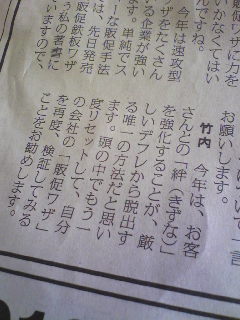 いかなくてはい
んですね。
今年は速攻型
ザをたくさん
いる企業が強い
ます。単純でス
ーな販促手法
は、先日発売
う私の著書に
販促鉄板ワザ
いますので、
て一言
お願いします。
竹内　今年は、お客
さんとの「絆（きずな）」
を強化することが、厳
しいデフレから脱出す
る唯一の方法だと思い
ます。頭の中でもう一
度リセットして、自分
の会社の「販促ワザ」
を再度、検証してみる
ことをお勧めします。